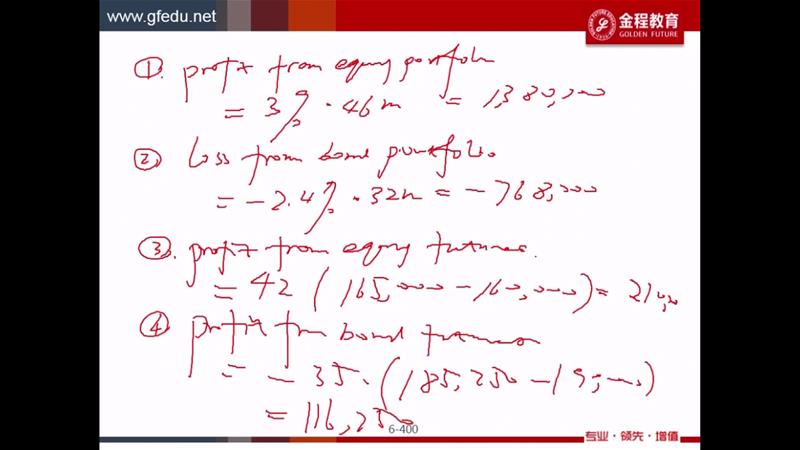 www.gfedu.net
金程教育
GOLDEN FUTURE
① profit from equity portfolio
= 3% · 46m = 1,380,000
② loss from bond portfolio
= -2.4% · 32m = -768,000
③ profit from equity futures.
= 42 (165,000 - 160,000) = 210,
④ profit from bond futures
= - 35 · (185,250 -
= 116,250
6-400
专业·领先·增值